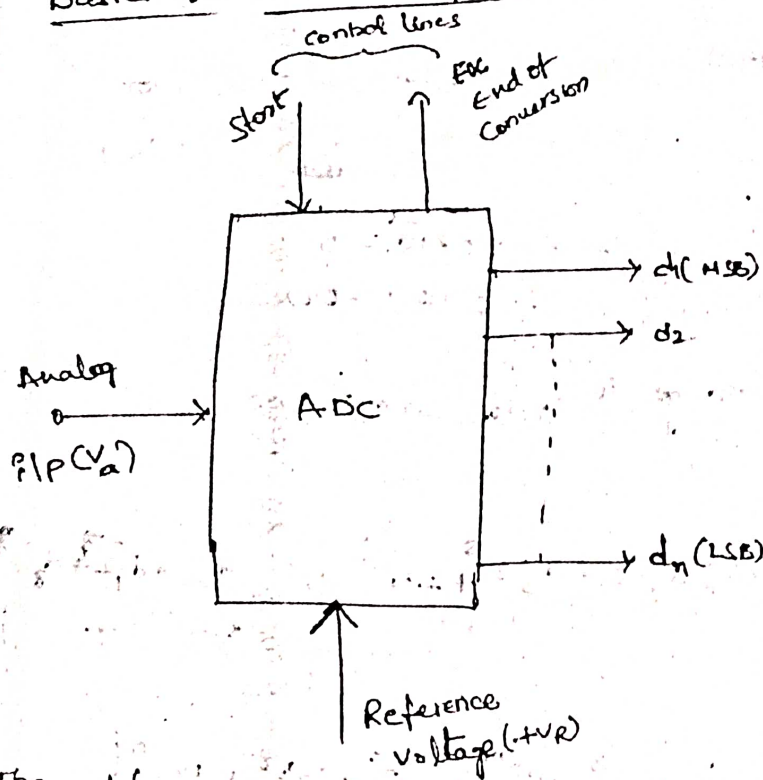 control lines
Start
EOC
End of
Conversion
d1( MSB)
d2
Analog
i/p (Va)
ADC
dn (LSB)
Reference
voltage (+VR)
The